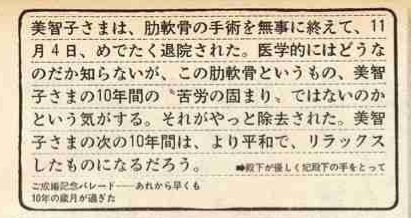 美智子さまは、肋軟骨の手術を無事に終えて、11
月4日、めでたく退院された。医学的にはどうな
のだか知らないが、この肋軟骨というもの、美智
子さまの10年間の〝苦労の固まり〟ではないのか
という気がする。それがやっと除去された。美智
子さまの次の10年間は、より平和で、リラックス
したものになるだろう。
➡殿下が優しく妃殿下の手をとって
ご成婚記念パレード——あれから早くも
10年の歳月が過ぎた